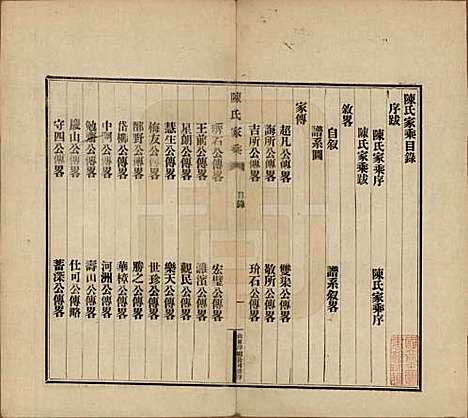 陳氏家乘目錄
序跋
陳氏家乘序 陳氏家乘序
陳氏家乘跋
敘畧
自叙 譜系叙畧
譜系圖
家傳
超凡公傳畧 雙渠公傳畧
誨所公傳畧 敬所公傳畧
吉所公傳畧 玠石公傳畧
陳氏家乘 目錄 一
磷石公傳畧 宏璧公傳畧
王前公傳畧 濰濱公傳畧
星朗公傳畧 觀民公傳畧
慧生公傳畧 樂天公傳畧
梅友公傳畧 世珍公傳畧
郁野公傳畧 勝之公傳畧
岱樵公傳畧 華樟公傳畧
中公傳畧 河洲公傳畧
勉齋公傳畧 壽山公傳畧
慶山公傳畧 仕可公傳略
守四公傳畧 蓄深公傳畧